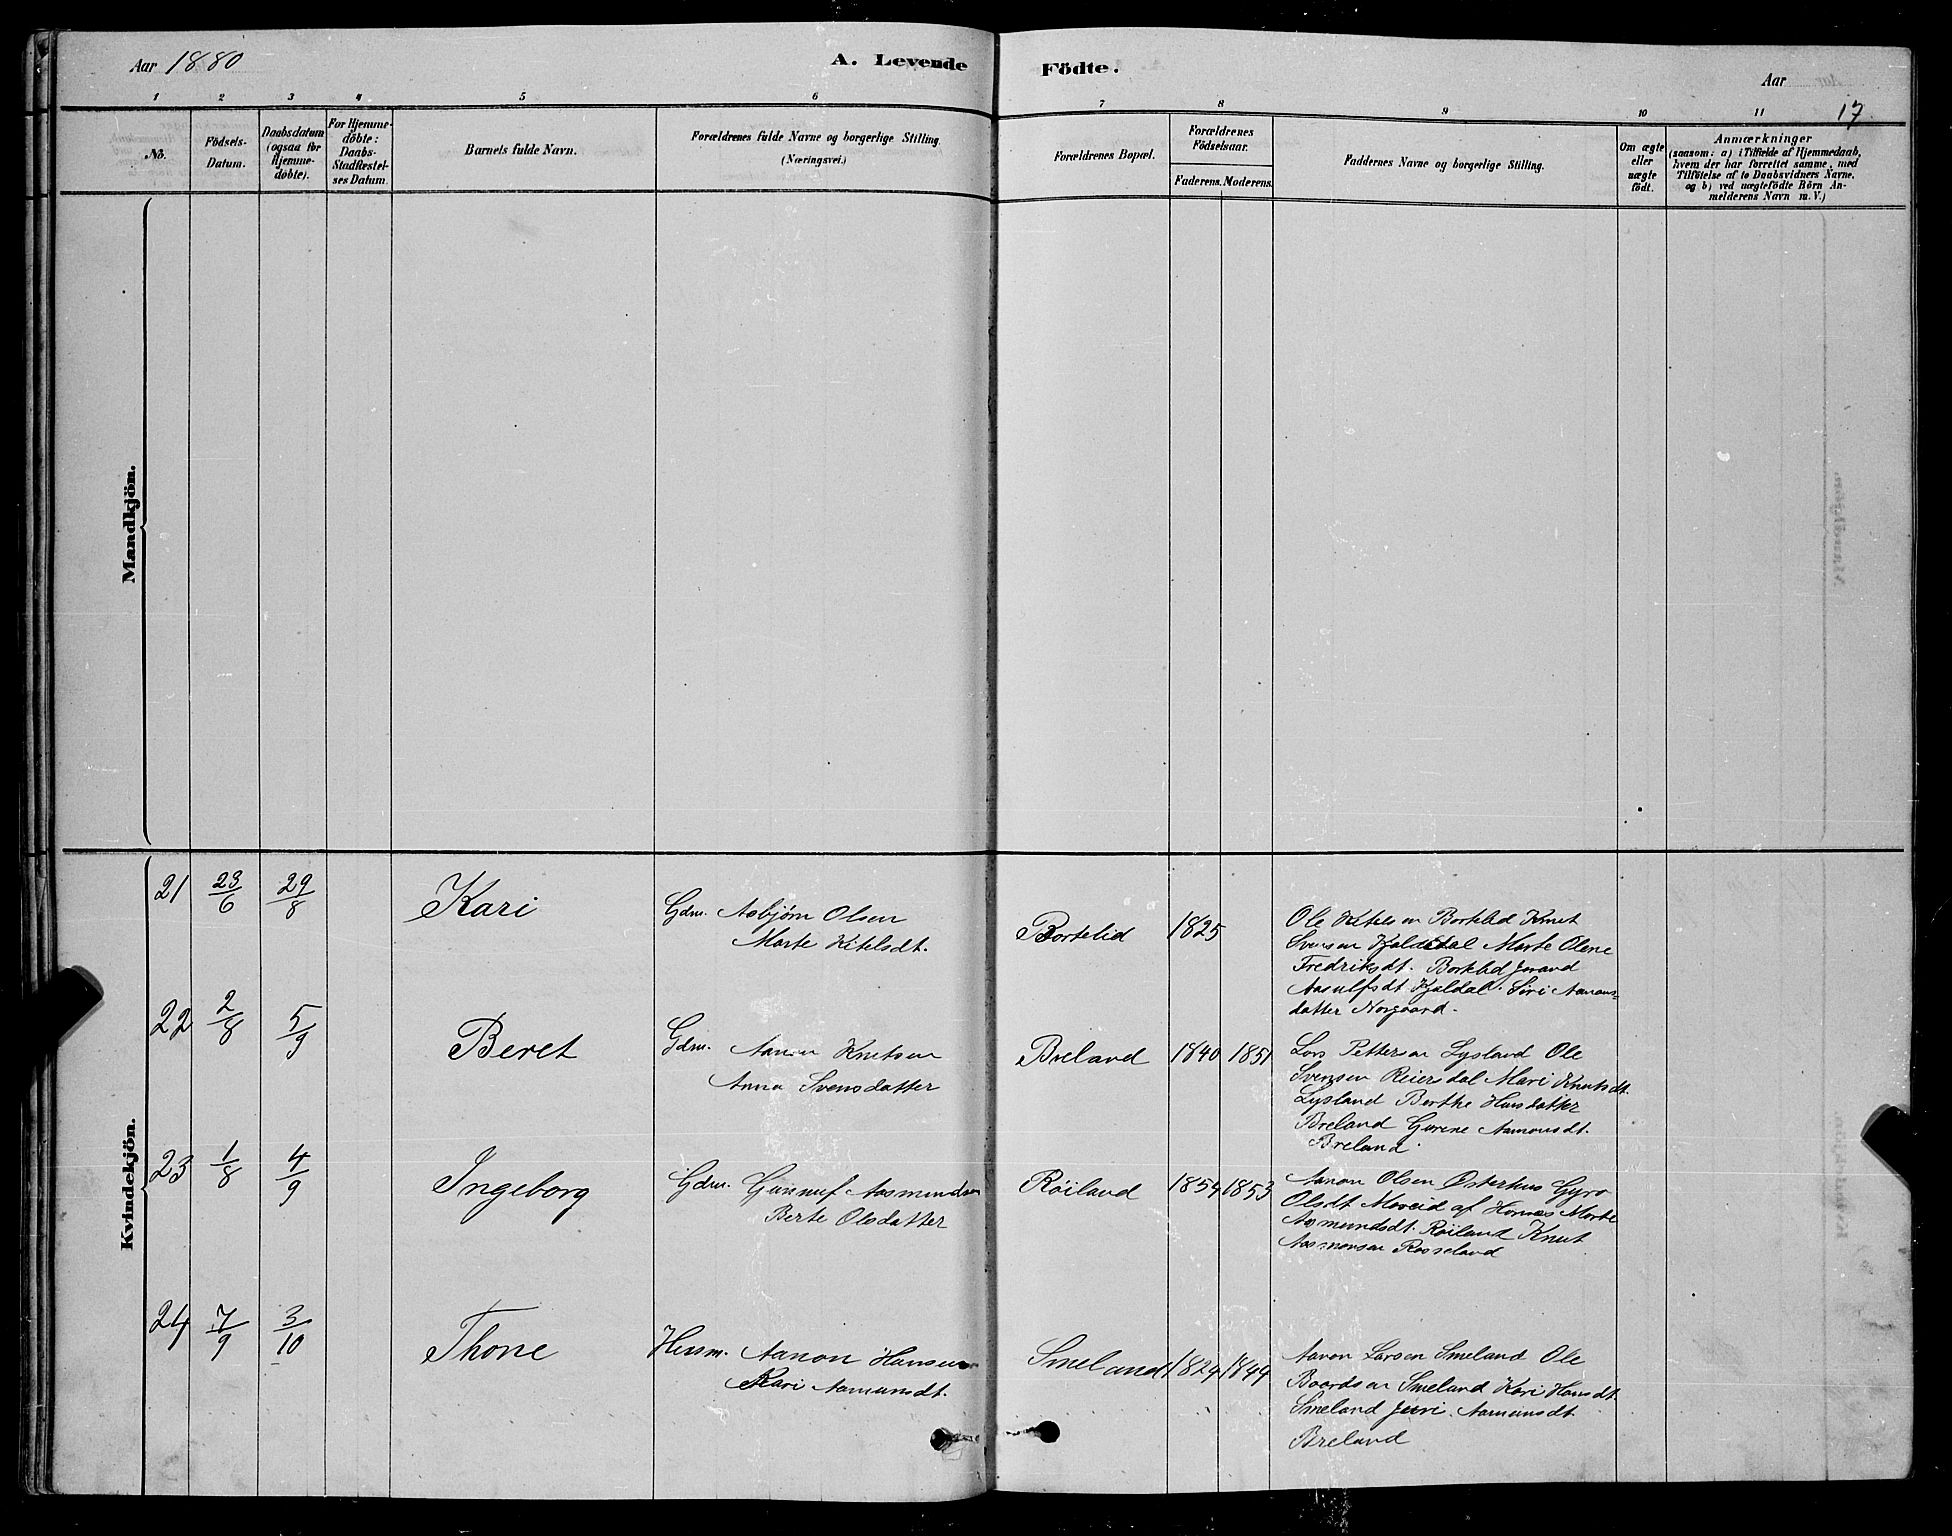 Aar 1880
A. Levende Födte.
Aar
17
1 2 3 4 5 6 7 8 9 10 11
No.
Födsels-
Datum.
Daabsdatum
(ogsaa for
Hjemme-
döbte).
For Hjemme-
döbte:
Daabs-
Stadfæstel-
ses Datum.
Barnets fulde Navn.
Forældrenes fulde Navne og borgerlige Stilling.
(Næringsvei.)
Forældrenes Bopæl.
Forældrenes
Födselsaar.
Faderens. Moderens.
Faddernes Navne og borgerlige Stilling.
Om ægte
eller
uægte
födt.
Anmærkninger
(saasom: a) i Tilfælde af Hjemmedaab,
hvem der har forrettet samme, med
Tilföielse af to Daabsvidners Navne.
og b) ved uægtefödte Börn An-
melderens Navn m. V.)
Mandkjön.
Kvindekjön.
21 23/6 29/8 Kari
Gdm. Asbjørn Olsen
Marte Kitelsdt.
Bortelid 1825
Ole Kitelsen Bortelid Knut
Svensen Kyldal Marte Olene
Fredriksdt. Bortelid Jorand
Aasulfsdt Kyldal. Siri Aanons-
datter Norgaard.
22 2/8 5/9 Beret
Gdm. Aanon Knutsen
Anna Svensdatter
Breland 1840 1851
Lars Pettersen Lysland Ole
Svensen Reiersdal Mari Knutsdt.
Lysland Berthe Hansdatter
Breland Gurine Aamonsdt.
Breland.
23 1/8 4/9 Ingeborg
Gdm. Gunnuf Aasmundsen
Berte Olsdatter
Röiland 1854 1853
Aanon Olsen Østerhus Gyro
Olsdt Moseid af Hornes Marte
Aasmundsdt. Röiland Knut
Aasmonsen Rosseland
24 7/9 3/10 Thone
Husm. Aanon Hansen
Kari Aamundsdt.
Smeland 1829 1844
Aanon Larsen Smeland Ole
Baardsen Smeland Kari Hansdt.
Smeland Juri Aamunsdt
Breland